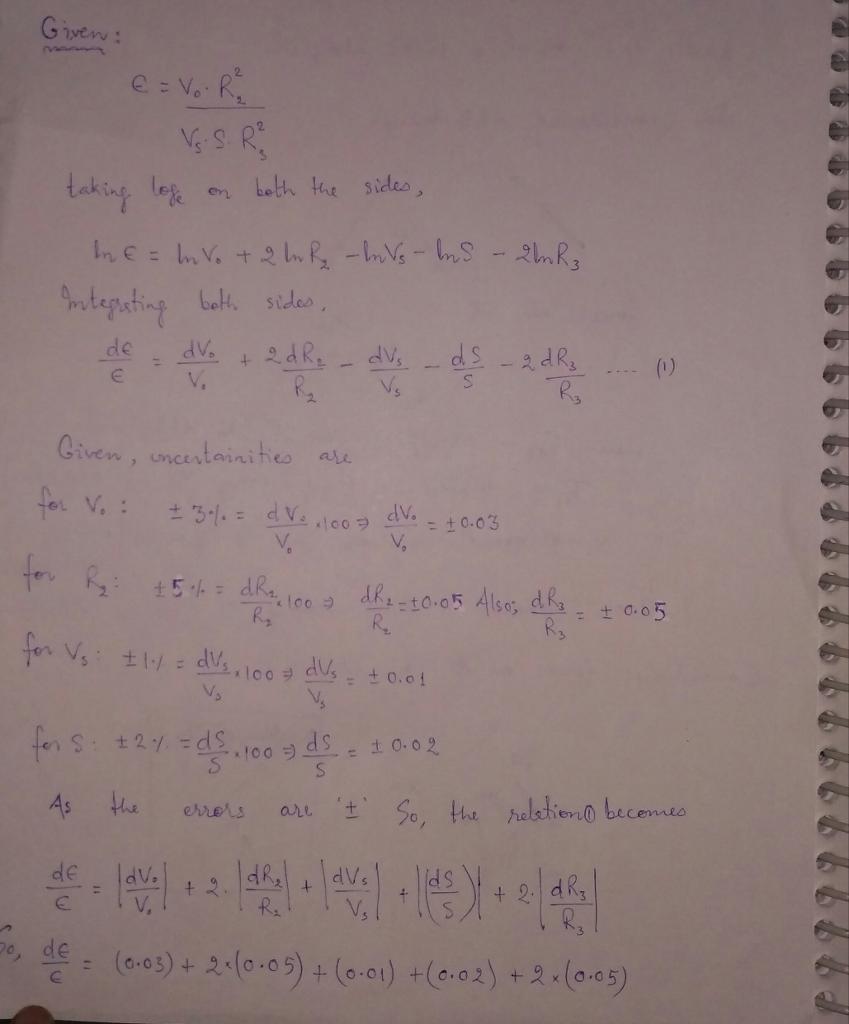 Given:
ϵ = V₀. R₂²
V_S. S. R₃²
taking logₑ on both the sides,
ln ϵ = ln V₀ + 2 ln R₂ - ln V_S - ln S - 2 ln R₃
Integrating both sides,
dϵ/ϵ = dV₀/V₀ + 2 dR₂/R₂ - dV_S/V_S - dS/S - 2 dR₃/R₃ .... (1)
Given, uncertainities are
for V₀: ± 3% = dV₀/V₀ × 100 ⇒ dV₀/V₀ = ± 0.03
for R₂: ± 5% = dR₂/R₂ × 100 ⇒ dR₂/R₂ = ± 0.05 Also; dR₃/R₃ = ± 0.05
for V_S: ± 1% = dV_S/V_S × 100 ⇒ dV_S/V_S = ± 0.01
for S: ± 2% = dS/S × 100 ⇒ dS/S = ± 0.02
As the errors are '±' So, the relation① becomes
dϵ/ϵ = |dV₀/V₀| + 2. |dR₂/R₂| + |dV_S/V_S| + |(dS/S)| + 2. |dR₃/R₃|
So, dϵ/ϵ = (0.03) + 2×(0.05) + (0.01) + (0.02) + 2×(0.05)